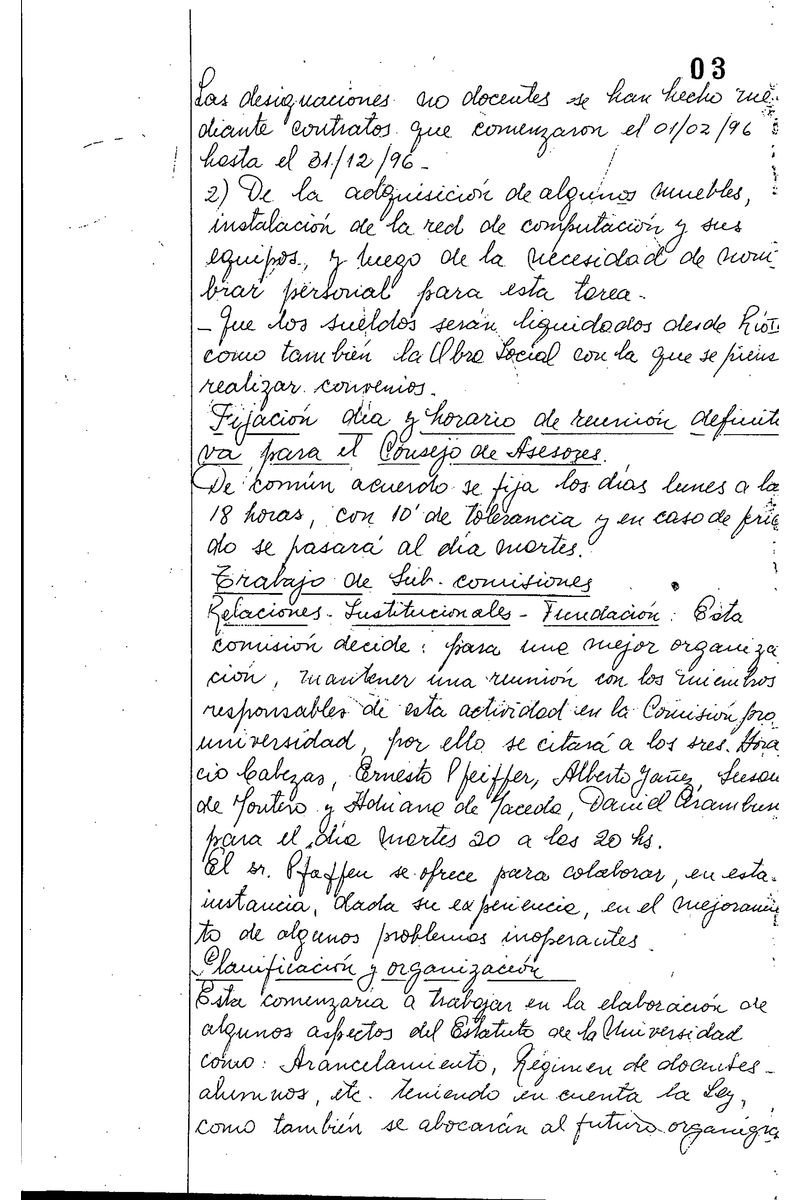 03
Las designaciones no docentes se han hecho me-
diante contratos que comenzaron el 01/02/96
hasta el 31/12/96-
2) De la adquisición de algunos muebles,
instalación de la red de computación y sus
equipos, y luego de la necesidad de nom-
brar personal para esta tarea-
- Que los sueldos serán liquidados desde
como también la Obra Social con la que se piens
realizar convenios.
Fijación día y horario de reunión definiti
va para el Consejo de Asesores.
De común acuerdo se fija los días lunes a la
18 horas, con 10' de tolerancia y en caso de feria
do se pasará al día martes.
Trabajo de Sub-comisiones
Relaciones-Institucionales-Fundación: Esta
comisión decide: para una mejor organiza
ción, mantener una reunión con los miembros
responsables de esta actividad en la Comisión pro
universidad, por ello se citará a los sres. Hora
cio Cabezas, Ernesto Pfeiffer, Alberto Yañez, Susan
de y Adriana de Daniel Aramburu
para el día martes 20 a las 20 hs.
El sr. Pfaffen se ofrece para colaborar, en esta
instancia, dada su experiencia, en el mejoramien
to de algunos problemas inoperantes.
Planificación y organización
Esta comenzaría a trabajar en la elaboración de
algunos aspectos del Estatuto de la Universidad
como: Arancelamiento, Régimen de docentes-
alumnos, etc. teniendo en cuenta la Ley,
como también se abocarán al futuro organigra